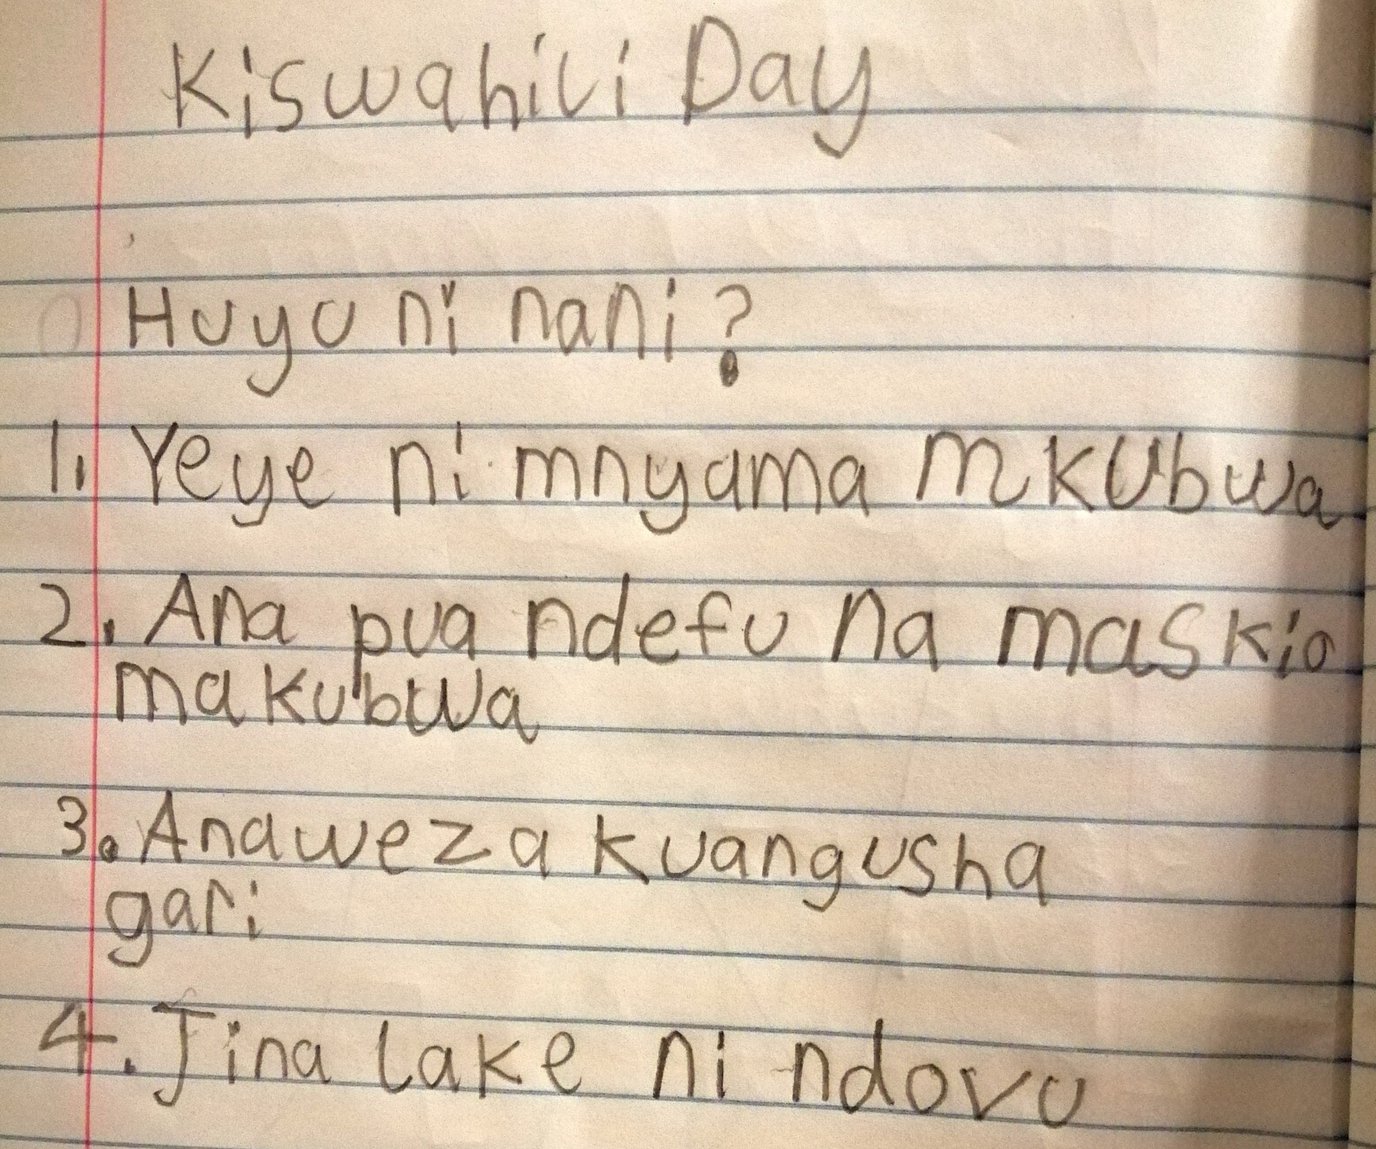 Kiswahili Day
Huyu ni nani?
1. Yeye ni mnyama mkubwa
2. Ana pua ndefu na maskio
makubwa
3. Anaweza kuangusha
gari
4. Jina lake ni ndovu